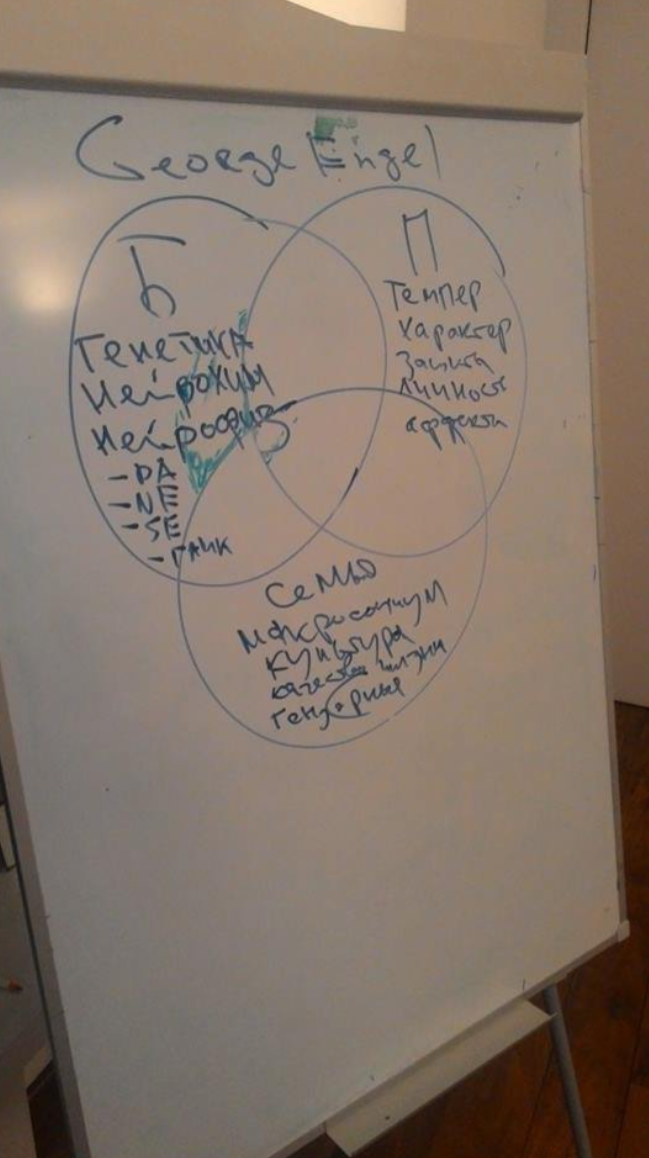 George Engel
Б
Генетика
Нейрохим
Нейрофиз
- DA
- NE
- SE
- ГАМК
П
Темпер
характер
защита
личност
аффекты
Семья
культура
качество жизни
гендерные